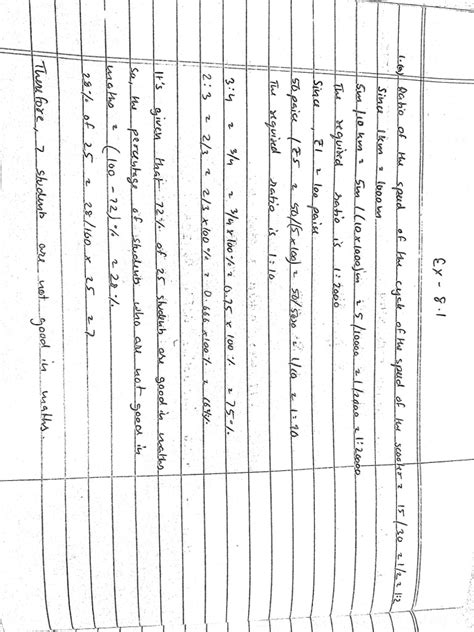 Ex - 8.1
1.(a) Ratio of the speed of the cycle of the speed of the scooter = 15/30 = 1/2 = 1:2
Since 1km = 1000m
5m/10km = 5m/(10x1000)m = 5/10000 = 1/2000 = 1:2000
The required ratio is 1:2000
Since, ₹1 = 100 paise
50 paise/₹5 = 50/(5x100) = 50/500 = 1/10 = 1:10
The required ratio is 1:10
3:4 = 3/4 = 3/4 x 100% = 0.75 x 100% = 75%
2:3 = 2/3 = 2/3 x 100% = 0.666 x 100% =
It's given that 72% of 25 students are good in maths.
So, the percentage of students who are not good in
maths = (100 - 72)% = 28%
28% of 25 = 28/100 x 25 = 7
Therefore, 7 students are not good in maths.